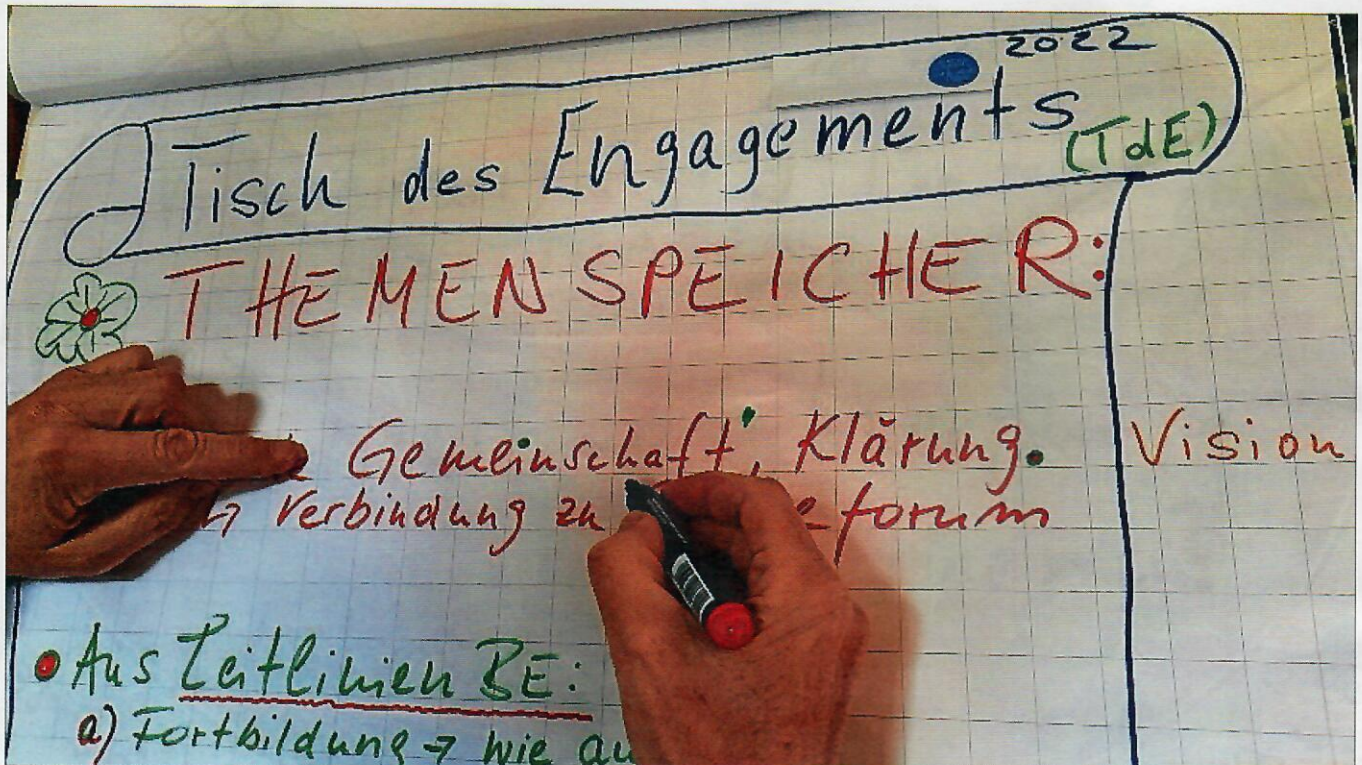 2022
Tisch des Engagements
(TdE)
THEMENSPEICHER:
Gemeinschaft, Klärung.
Vision
→ Verbindung zu
forum
• Aus Leitlinien BE:
a) Fortbildung → wie